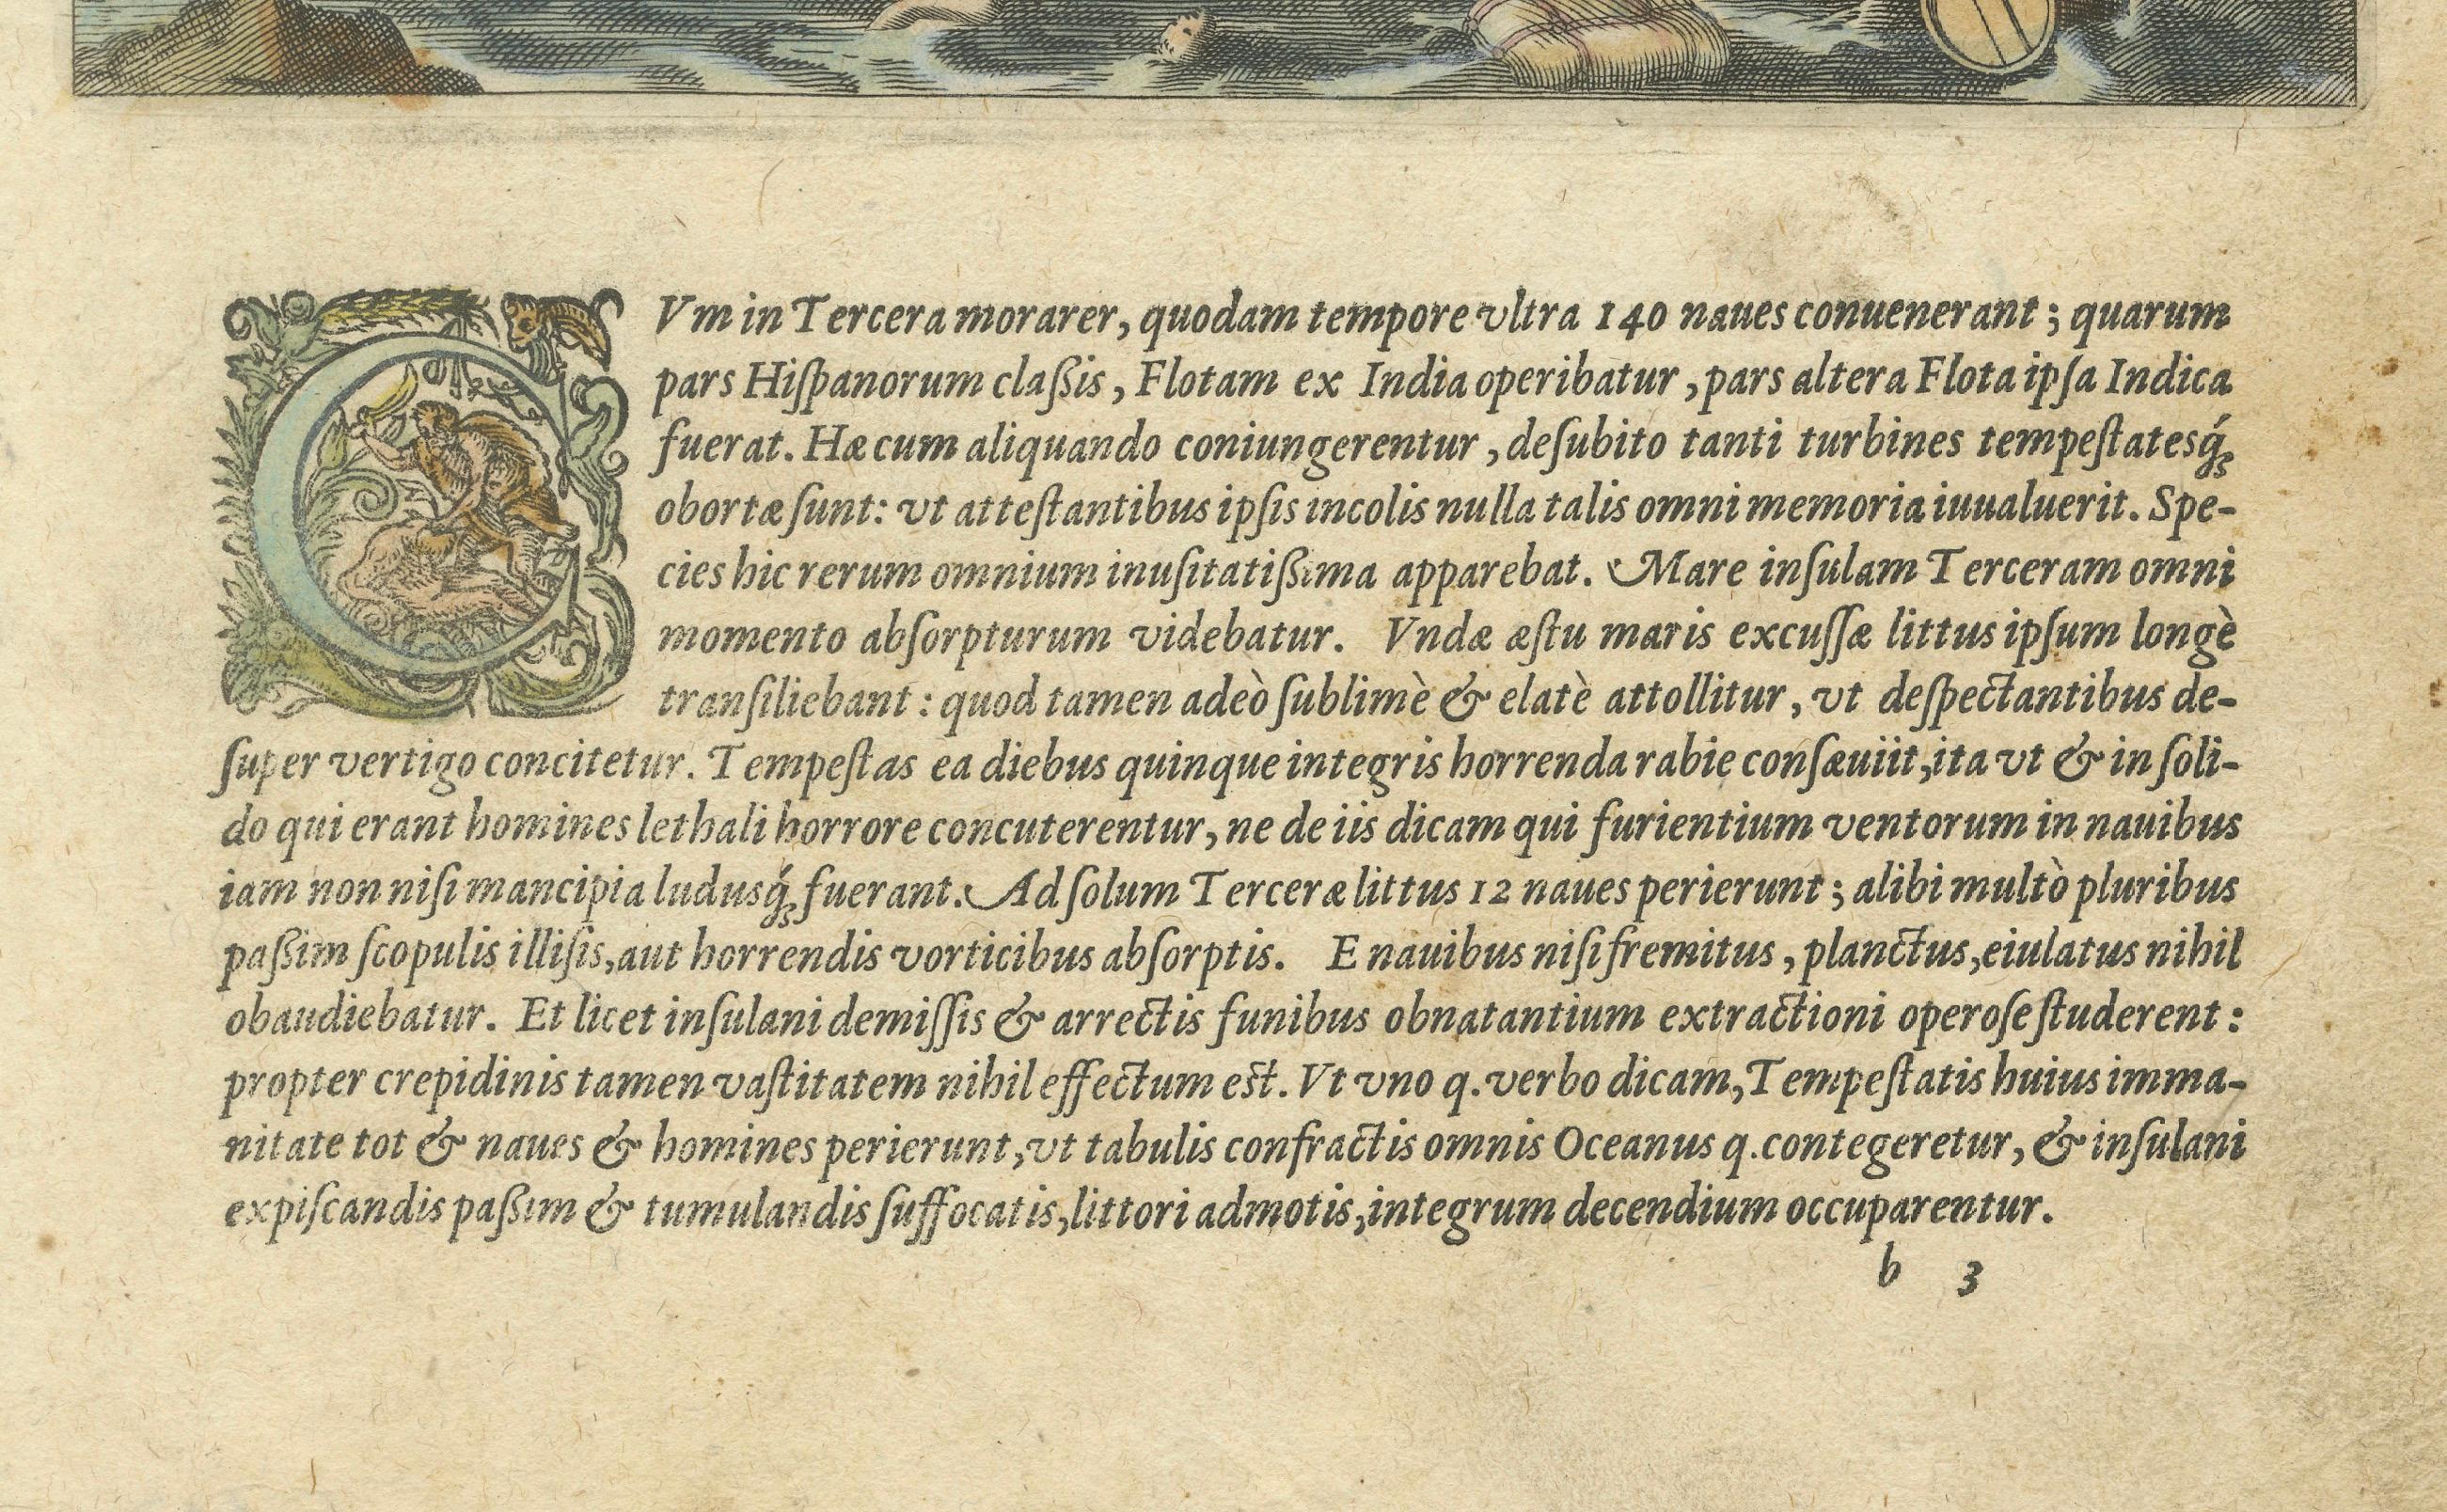 CVm in Tercera morarer, quodam tempore vltra 140 naues conuenerant; quarum
pars Hiſpanorum claßis, Flotam ex India operibatur, pars altera Flota ipſa Indica
fuerat. Hæ cum aliquando coniungerentur, deſubito tanti turbines tempeſtatesq́;
obortæ ſunt: vt atteſtantibus ipſis incolis nulla talis omni memoria iuualuerit. Spe-
cies hic rerum omnium inuſitatißima apparebat. Mare inſulam Terceram omni
momento abſorpturum videbatur. Vndæ æſtu maris excuſſæ littus ipſum longè
tranſiliebant: quod tamen adeò ſublimè & elatè attollitur, vt deſpectantibus de-
ſuper vertigo concitetur. Tempeſtas ea diebus quinque integris horrenda rabie conſæuiit, ita vt & in ſoli-
do qui erant homines lethali horrore concuterentur, ne de iis dicam qui furientium ventorum in nauibus
iam non niſi mancipia ludusq́; fuerant. Ad ſolum Terceræ littus 12 naues perierunt; alibi multò pluribus
paßim ſcopulis illiſis, aut horrendis vorticibus abſorptis. E nauibus niſi fremitus, planctus, eiulatus nihil
obaudiebatur. Et licet inſulani demiſſis & arrectis funibus obnatantium extractioni operoſe ſtuderent:
propter crepidinis tamen vaſtitatem nihil effectum est. Vt vno q. verbo dicam, Tempeſtatis huius imma-
nitate tot & naues & homines perierunt, vt tabulis confractis omnis Oceanus q. contegeretur, & inſulani
expiſcandis paßim & tumulandis ſuffocatis, littori admotis, integrum decendium occuparentur.
b 3